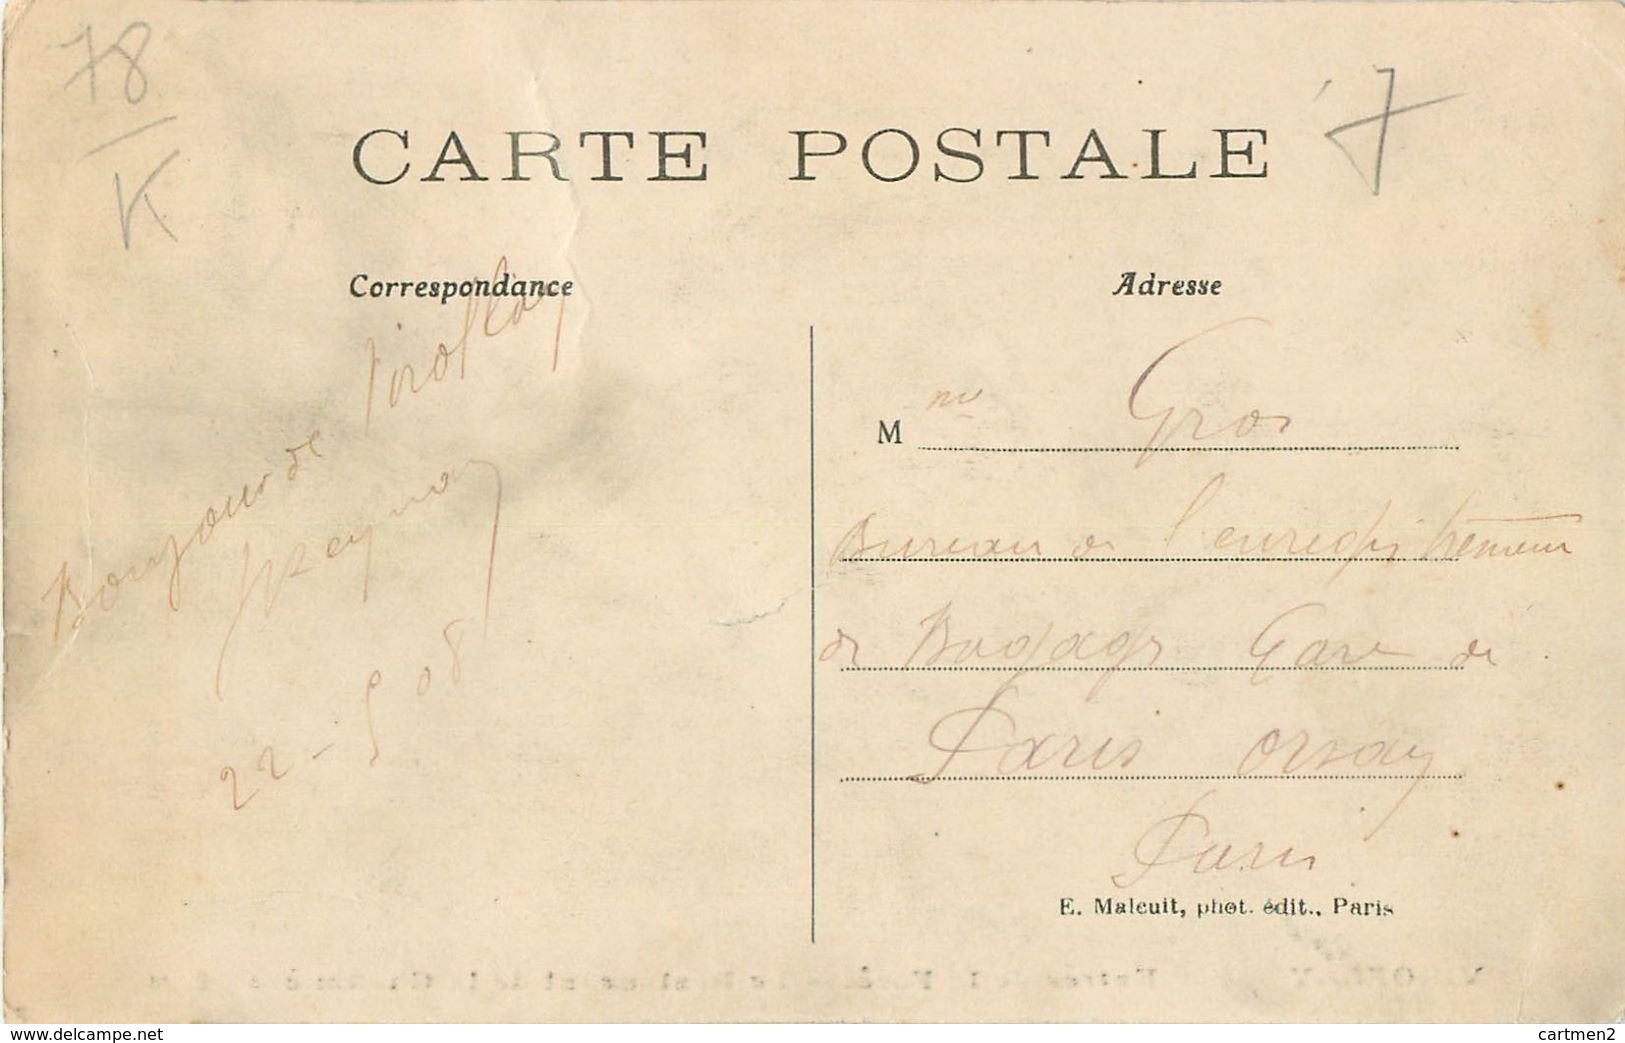 78
K
7
CARTE POSTALE
Correspondance
Adresse
Bonjour de Viroflay
22-5 08
M me Gros
Bureau de l'enregistrement
de Bagages Gare de
Paris Orsay
Paris
E. Malcuit, phot. édit., Paris
www.delcampe.net
cartmen2